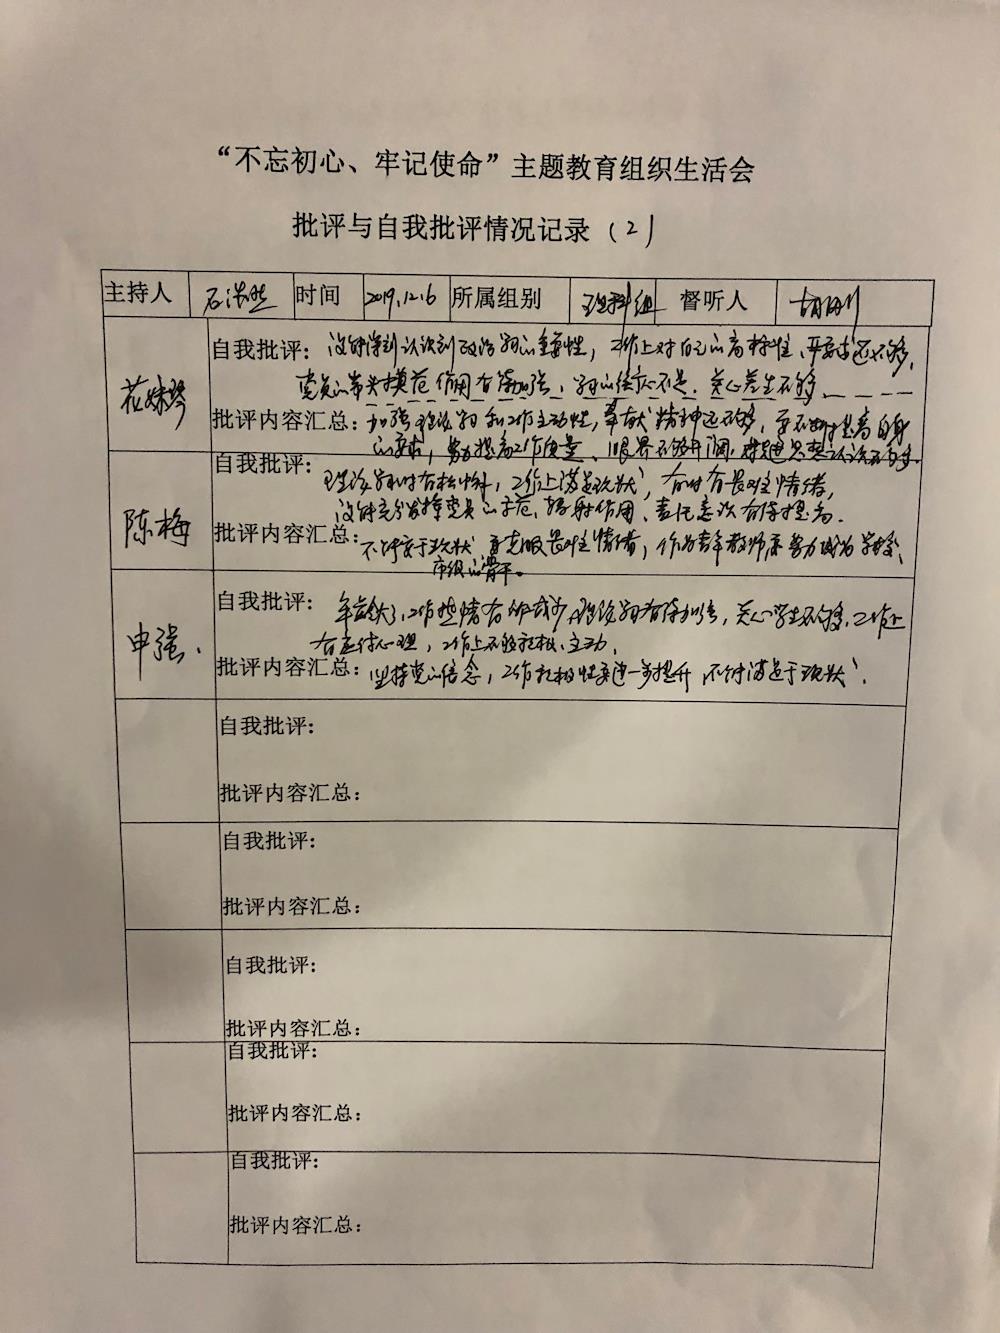 “不忘初心、牢记使命”主题教育组织生活会
批评与自我批评情况记录（2）
主持人 石浩然 时间 2019.12.6 所属组别 理科组 督听人 胡刚
花妹琴 自我批评：没能深刻认识到政治学习的重要性，工作上对自己的高标准、严要求还不够，
党员的带头模范作用有待加强，学习的信心不足．关心差生不够
批评内容汇总：加强理论学习和工作主动性，奉献精神还不够，要不断提高自身
的素质，努力提高工作质量、眼界不够开阔．
陈梅 自我批评：理论学习时有松懈，工作上满足现状，有时有畏难情绪，
没能充分发挥党员的示范、辐射作用、责任意识有待提高．
批评内容汇总：不能安于现状，要克服畏难情绪，作为青年教师要努力成为学校、
市级的骨干。
申强． 自我批评：年龄大了，工作热情有所减少，理论学习有待加强，关心学生不够，工作上
有应付心理，工作上不够积极、主动．
批评内容汇总：坚持党的信念，工作积极性要进一步提升，不能满足于现状．
自我批评：
批评内容汇总：
自我批评：
批评内容汇总：
自我批评：
批评内容汇总：
自我批评：
批评内容汇总：
自我批评：
批评内容汇总：